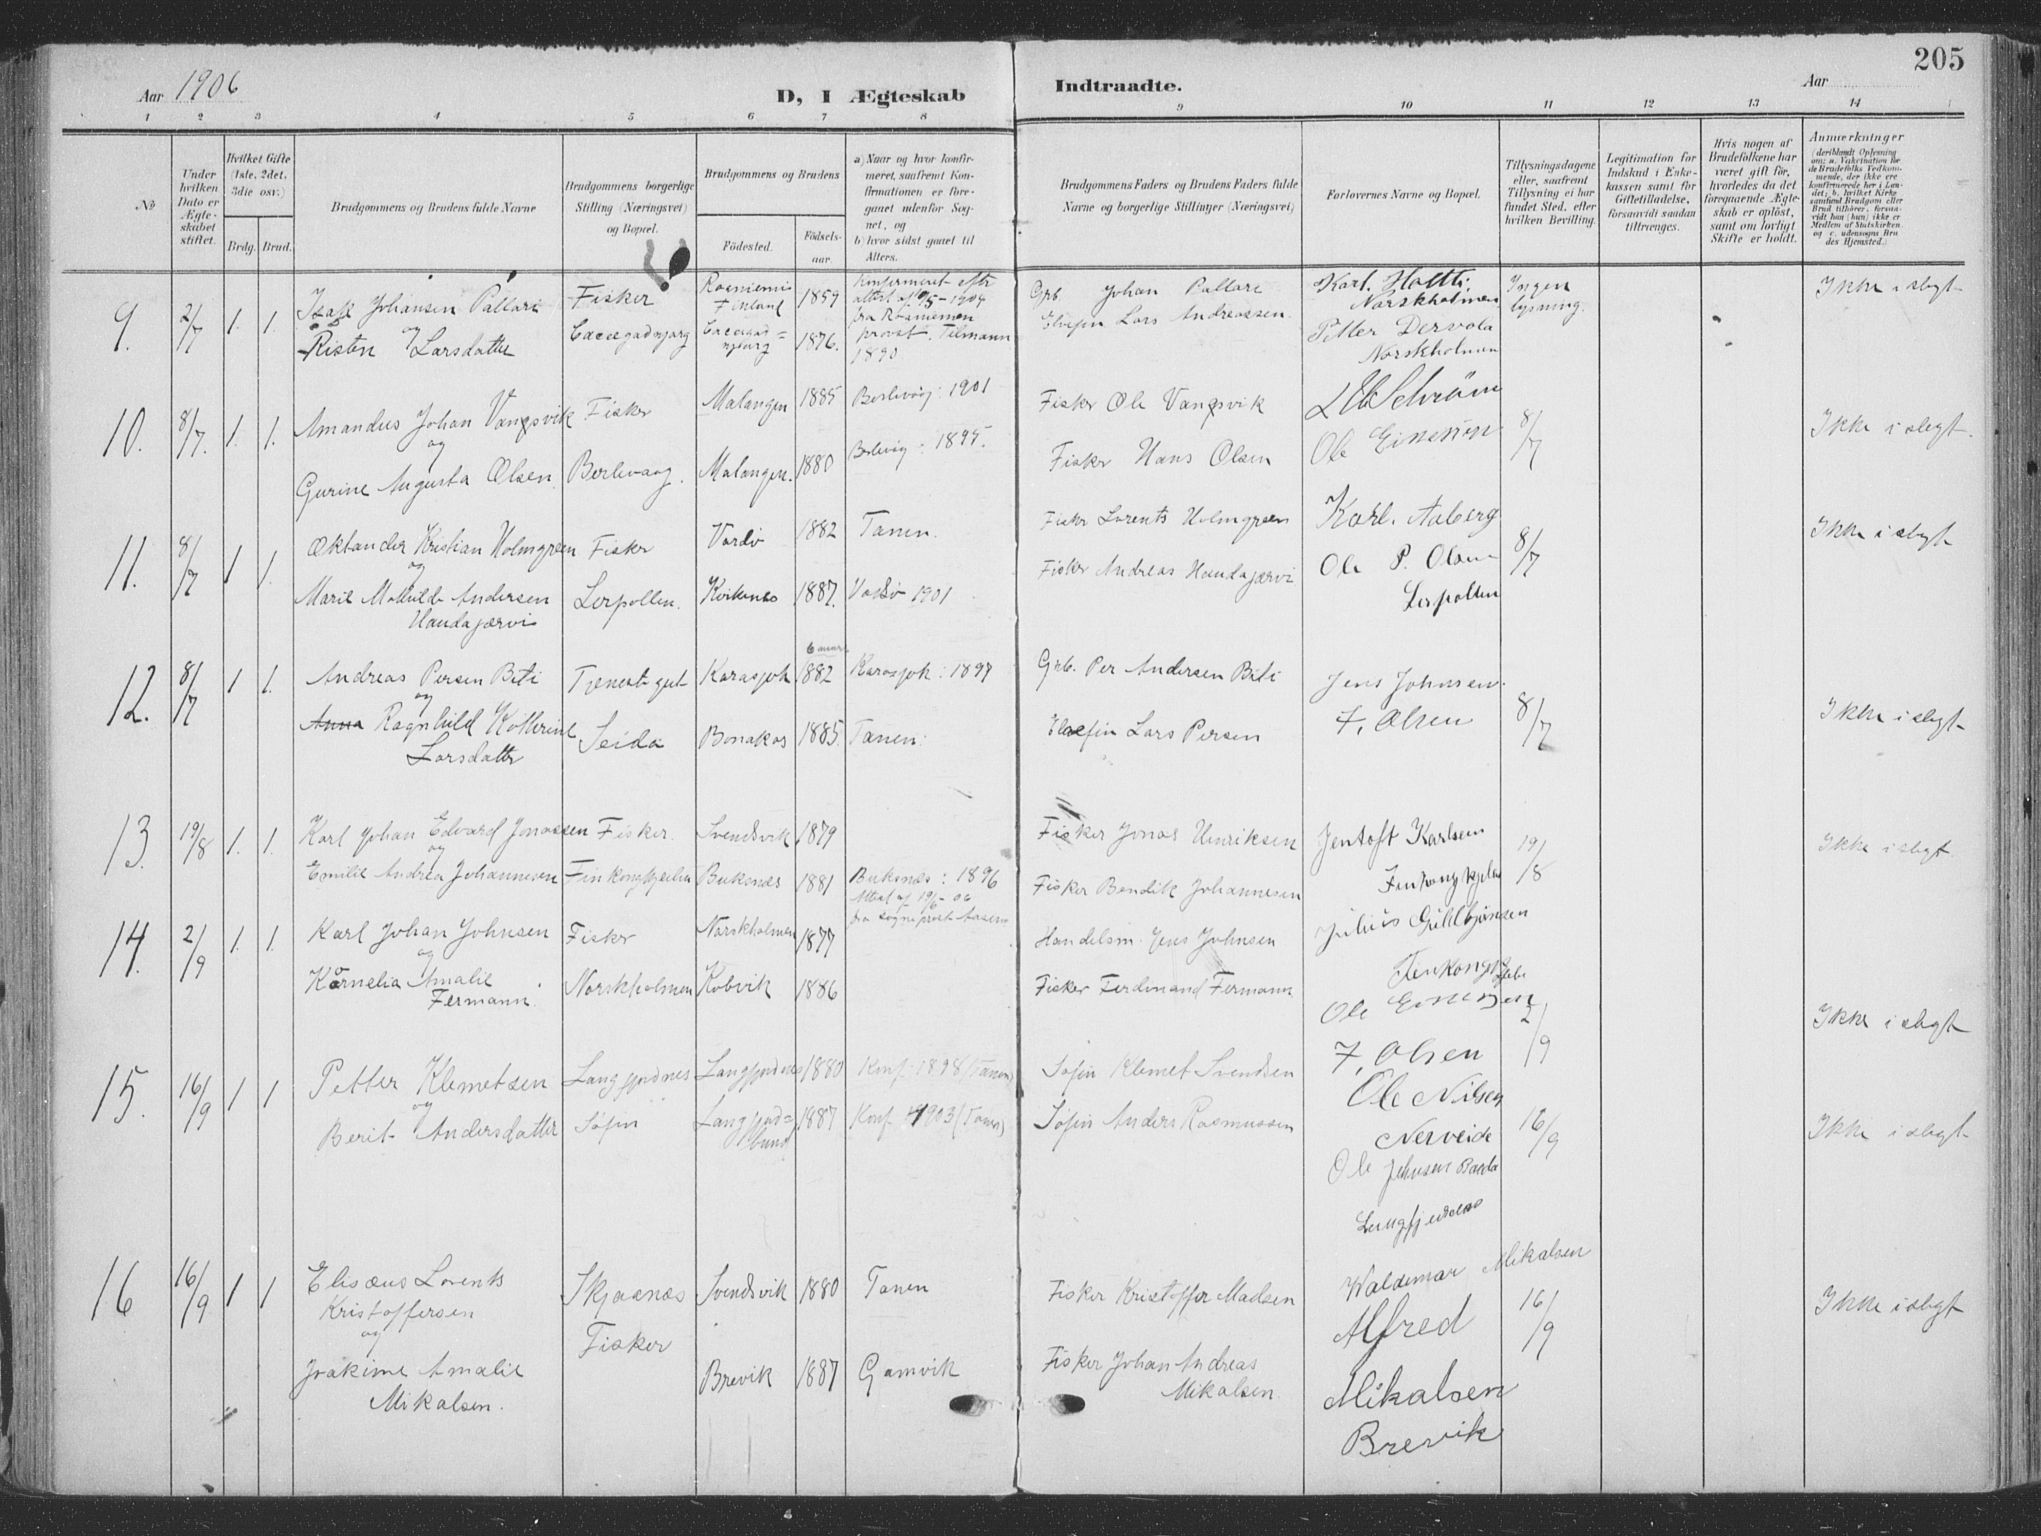 205
Aar 1906
D, I Ægteskab
Indtraadte.
Aar
1 2 3 4 5 6 7 8 9 10 11 12 13 14
No
Under hvilken Dato er Ægteskabet stiftet.
Hvilket Gifte (1ste, 2det, 3die osv.)
Brdg. Brud.
Brudgommens og Brudens fulde Navne
Brudgommens borgerlige Stilling (Næringsvei) og Bopæl.
Brudgommens og Brudens
Fødested.
Fødselsaar.
a) Naar og hvor konfirmeret, saafremt Konfirmationen er foregaaet udenfor Sognet, og
b) hvor sidst gaaet til Alters.
Brudgommens Faders og Brudens Faders fulde Navne og borgerlige Stillinger (Næringsvei)
Forlovernes Navne og Bopæl.
Tillysningsdagene eller, saafremt Tillysning ei har fundet Sted, efter hvilken Bevilling.
Legitimation for Indskud i Enkekassen samt for Giftetilladelse, forsaavidt saadan tiltrænges.
Hvis nogen af Brudefolkene har været gift før, hvorledes da det foregaaende Ægteskab er opløst, samt om lovligt Skifte er holdt.
Anmærkninger
9. 2/7 1. 1. Isak Johansen Pallari
og
Risten Larsdatter
Fisker
Cæcægadnjarg
Roaniemi Finland 1859
Cæcægadnjarg 1876.
Konfirmeret efter
fra Roaniemen
provst. Tilmann
1890
Grb. Johan Pallare
Elvefin Lars Andreassen.
Karl. Holtti.
Norskholmen
Petter Dervola
Norskholmen
Ingen lysning.
Ikke i slegt
10. 8/7. 1. 1. Amandus Johan Vangsvik
og
Gurine Augusta Olsen.
Fisker
Berlevaag.
Malangen 1885 Berlevaag: 1901
Malangen. 1880 Berlevåg: 1895.
Fisker Ole Vangsvik
Fisker Hans Olsen
Ole Einersen
8/7
Ikke i slegt.
11. 8/7 1 1. Oktander Kristian Holmgreen
og
Marie Mathilde Andersen
Handajærvi
Fisker
Lerpollen.
Vardø 1882 Tanen.
Kvikenes 1887. Vadsø 1901
Fisker Lorents Holmgreen
Fisker Andreas Handajærvi
Karl. Aaberg
Ole P. Olsen
Lerpollen
8/7
Ikke i slegt
12. 8/7 1 1. Andreas Persen Biti
og
Anna Ragnhild Katherine
Larsdatter
Tjenestgut
Seida
Karasjok 1882 Karasjok: 1897
Bonakas 1885. Tanen.
Grb. Per Andersen Biti
Elvefin Lars Persen
Jens Johnsen.
F. Olsen
8/7
Ikke i slegt
13. 19/8 1. 1. Karl Johan Edvard Jonassen
og
Emilie Andrea Johannesen
Fisker.
Finkongkjeilen
Svendsvik 1879
Buksnæs 1881 Buksnæs: 1896
Attest af 19/6-06
fra sogneprest Aasen
Fisker Jonas Henriksen
Fisker Bendik Johannesen
Jentoft Karlsen
Finkongkjeila
Julius Guldbjørnsen
19/8
Ikke i slegt.
14. 2/9 1. 1. Karl Johan Johnsen
og
Kornelia Amalie
Fermann.
Fisker
Norskholmen
Norskholmen 1877
Kobvik 1886
Handelsm. Jens Johnsen
Fisker Ferdinand Fermann
Ole Einersen
F. Olsen
2/9
Ikke i slegt
15. 16/9 1 1 Petter Klemetsen
og
Berit Andersdatter
Langfjordnes
Søfin
Langfjordnes 1880 Konf. 1898 (Tanen)
Langfjordbund 1887 Konf 1903 (Tanen)
Søfin Klemet Svendsen
Søfin Anders Rasmussen
Ole Nilsen
Nerveide
Ole Johnsen
Langfjordnes
16/9
Ikke i slegt
16 16/9 1 1 Elisæus Lorents
Kristoffersen
og
Joakime Amalie
Mikalsen.
Skjaanæs
Fisker
Svendsvik 1880 Tanen
Brevik 1887 Gamvik
Fisker Kristoffer Madsen
Fisker Johan Andreas
Mikalsen.
Waldemar Mikalsen
Alfred
Mikalsen
Brevik
16/9
Ikke i slegt